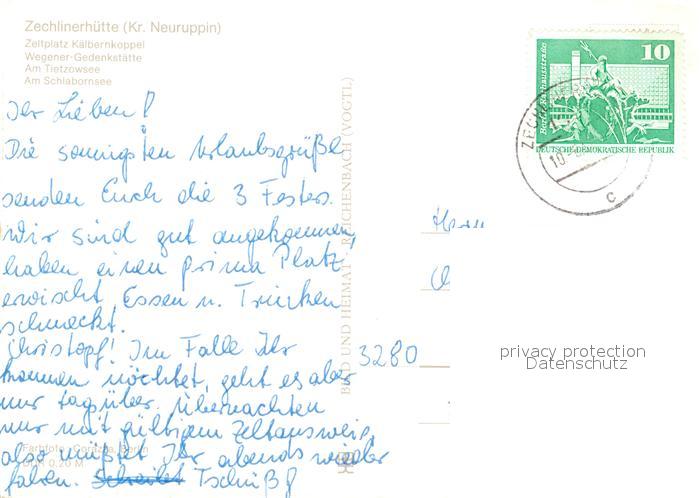 Zechlinerhütte (Kr. Neuruppin)
Zeltplatz Kälbernkoppel
Wegener-Gedenkstätte
Am Tietzowsee
Am Schlabornsee
Ihr Lieben!
Die sonnigsten Urlaubsgrüße
senden Euch die 3 Festers.
Wir sind gut angekommen,
haben einen prima Platz
erwischt. Essen u. Trinken
schmeckt.
Christopf! Im Falle Ihr
kommen möchtet, geht es aber
nur tagüber. Übernachten
nur mit gültigem Zeltausweis,
also müßtet Ihr abends wieder
fahren. Schreibet Tschüß
Farbfoto: Berlin
0,20 M
BILD UND HEIMAT REICHENBACH (VOGTL)
10
Berlin, Rathausstraße
DEUTSCHE DEMOKRATISCHE REPUBLIK
c
3280
privacy protection
Datenschutz